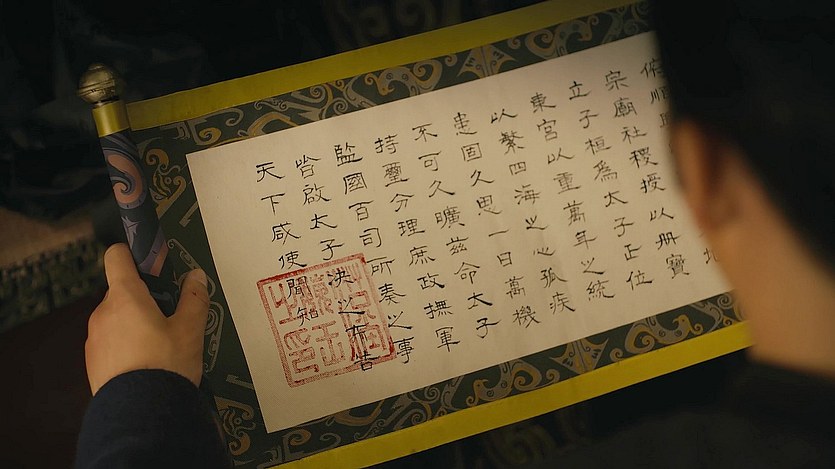 俯順
宗廟社稷授以册寶
立子桓為太子正位
東宮以重萬年之統
以繁四海之心孤疾
患固久思一日萬機
不可久曠茲命太子
持璽分理庶政撫軍
監國百司所奏之事
皆啟太子決之布告
天下咸使聞知